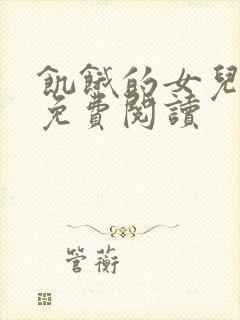 飢餓的女兒
免費閱讀
管蘅